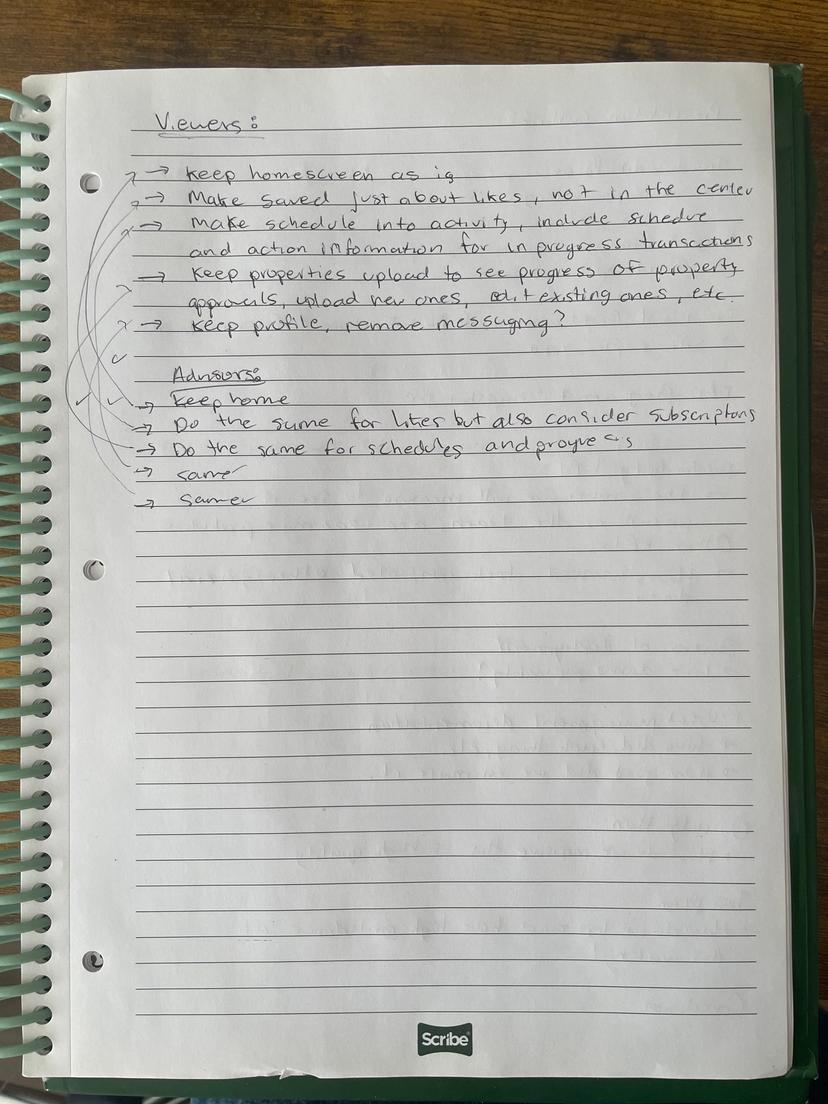 Viewers:
→ Keep homescreen as is
→ Make saved just about likes, not in the center
→ Make schedule into activity, include schedule
and action information for in progress transactions
→ Keep properties upload to see progress of property
approvals, upload new ones, edit existing ones, etc.
→ Keep profile, remove messaging?
Advisors:
→ Keep home
→ Do the same for likes but also consider subscriptions
→ Do the same for schedules and progress
→ same
→ same
Scribe